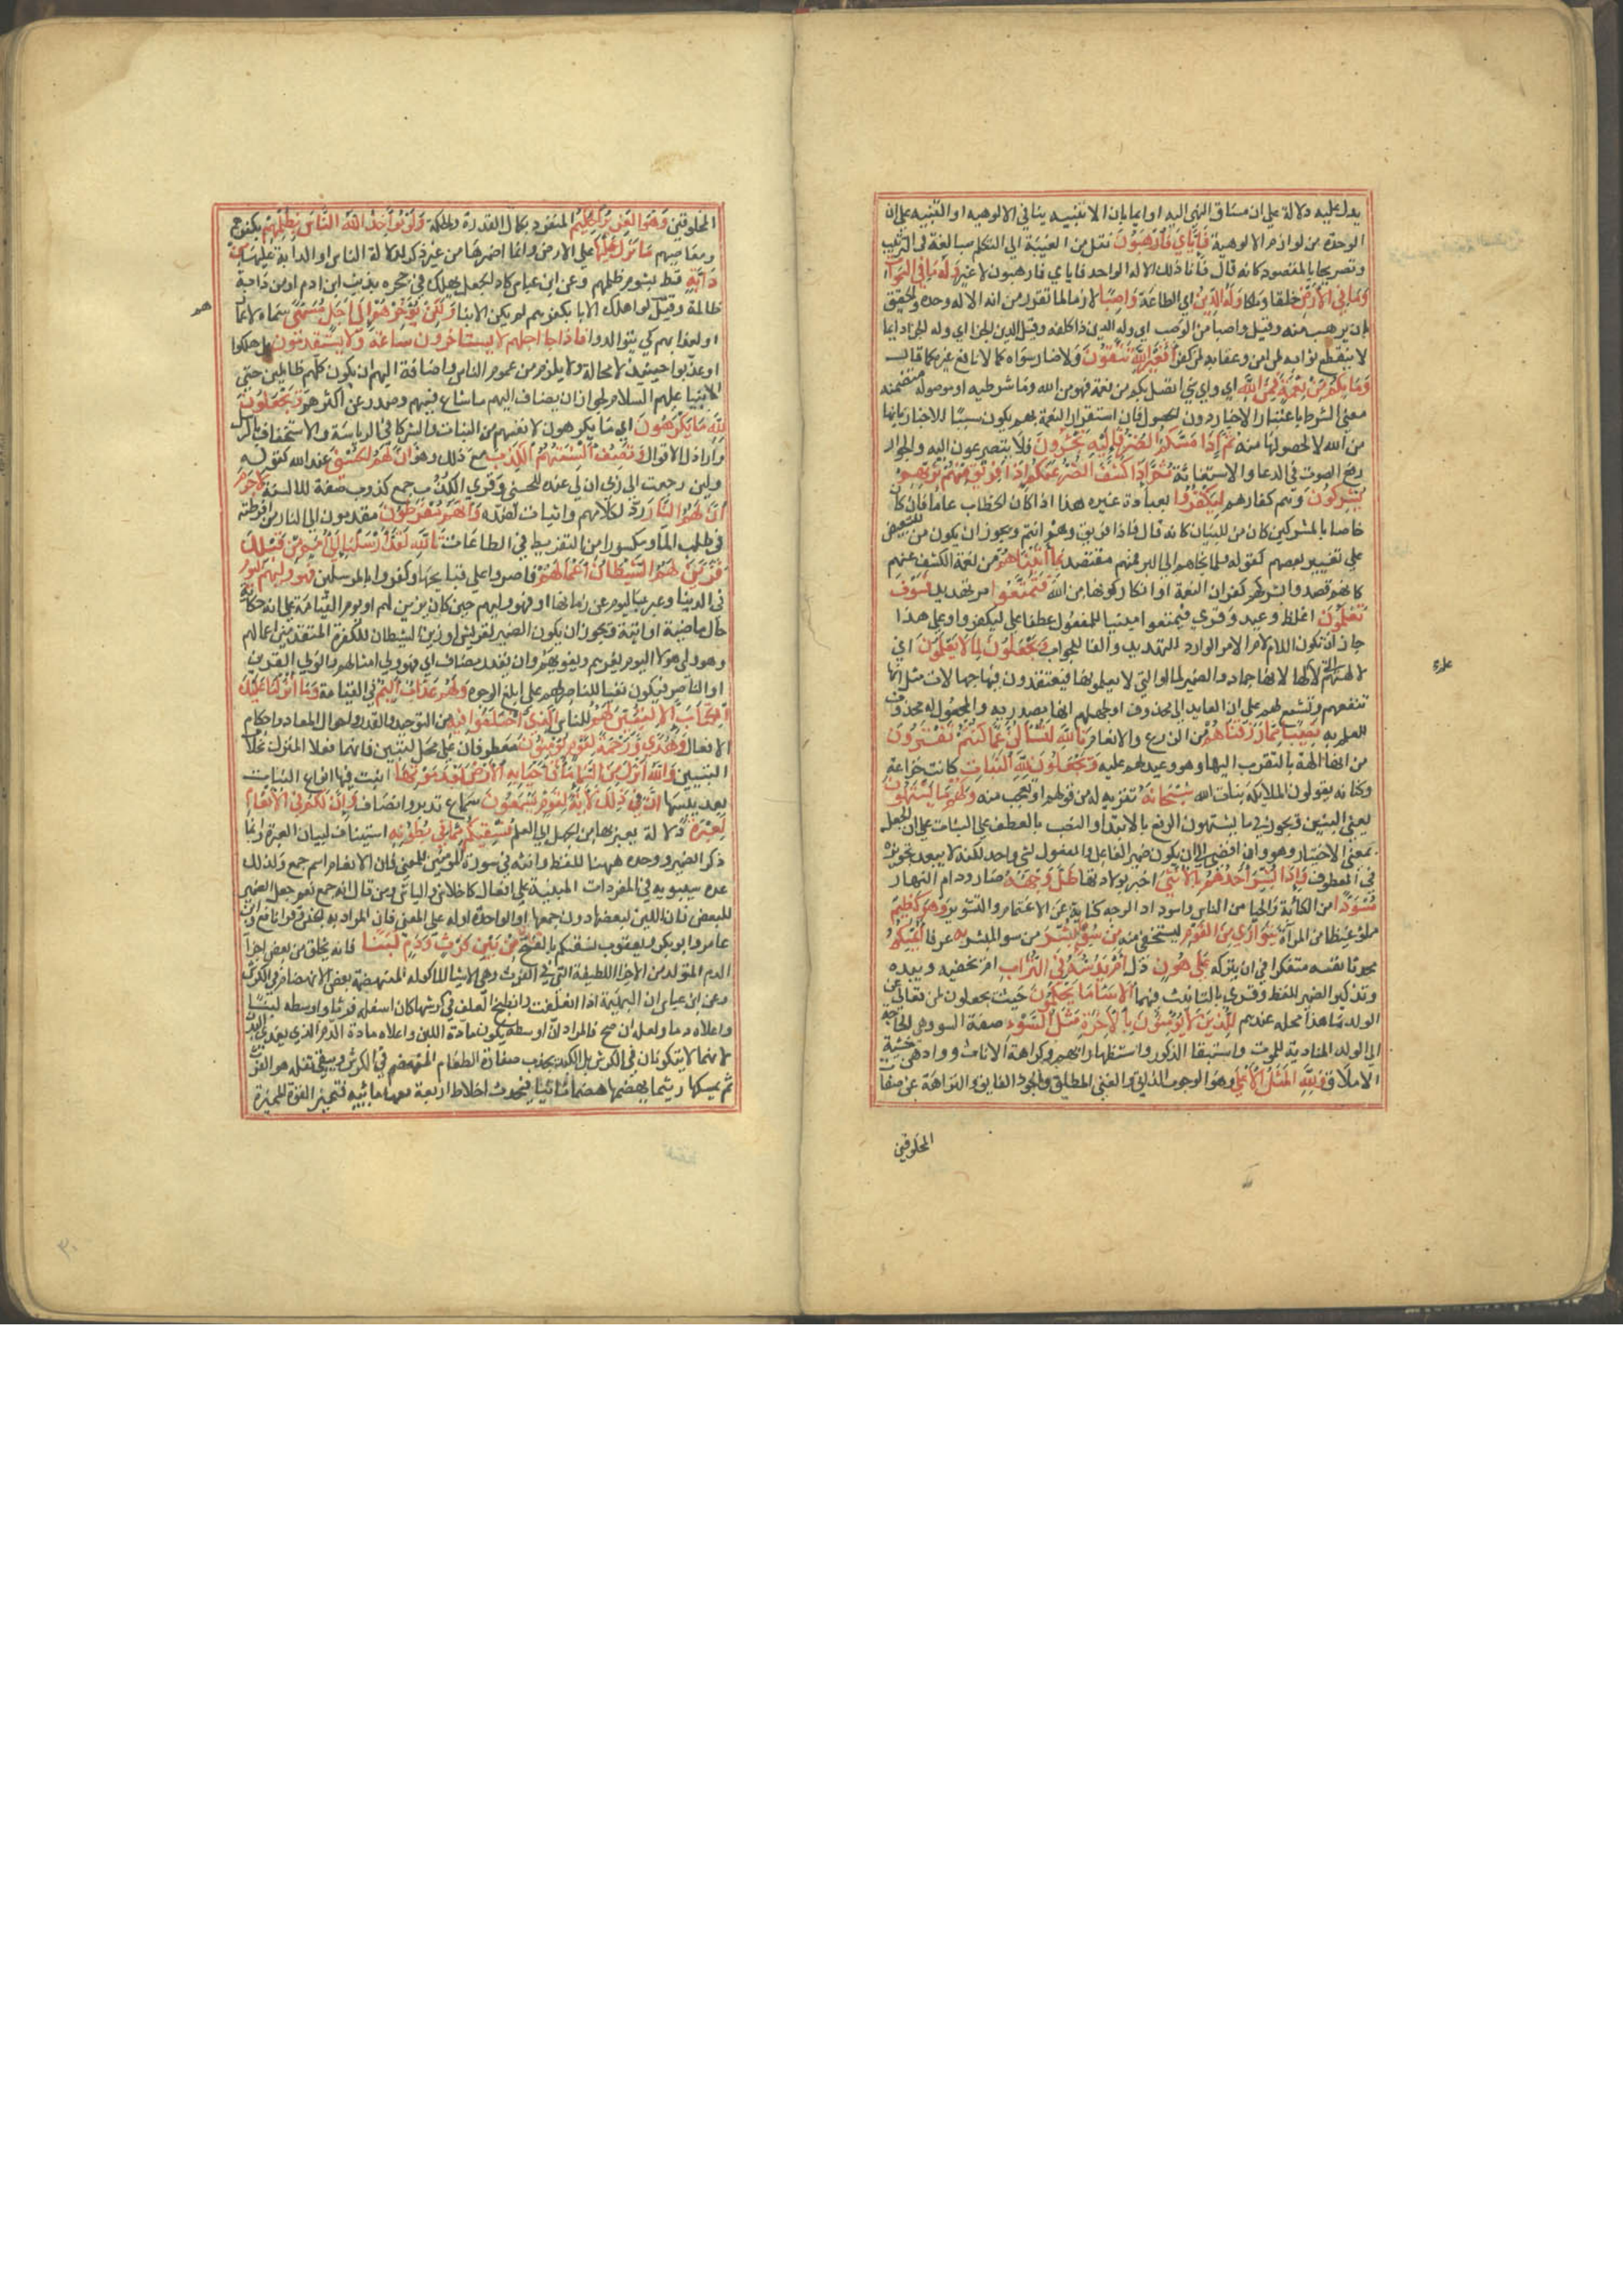 يدل عليه دلالة على ان مساق النهى اليه او ايما بان الاثنينيه ينافي الالوهيه او التنبيه على ان
الوحدة من لوازم الالوهية فَاِيَّايَ فَارْهَبُوْنَ نقل من الغيبة الى التكلم مبالغة في الترهيب
وتصريحا بالمقصود كانه قال فانا ذلك الاله الواحد فاياي فارهبون لا غير وَلَهُ مَا فِي السَّمٰوَاتِ
وَمَا فِي الْاَرْضِ خلقا وملكا وَلَهُ الدِّيْنُ اي الطاعة وَاصِبًا لازما لما تقرر من انه الاله وحده والحقيق
بان يرهب منه وقيل واصبا من الوصب اي وله الدين ذا كلفه وقيل الدين الجزا اي وله الجزا دايما
لا ينقطع ثوابه لمن امن وعقابه لمن كفر اَفَغَيْرَ اللّٰهِ تَتَّقُوْنَ ولا ضار سواه كما لا نافع غيره كما قال
وَمَا بِكُمْ مِنْ نِعْمَةٍ فَمِنَ اللّٰهِ اي واي شي اتصل بكم من نعمة فهو من الله وما شرطيه او موصوله متضمنه
معنى الشرط باعتبار الاخبار دون الحصول فان استقرار النعمة بهم يكون سببا للاخبار بانها
من الله لا لحصولها منه ثُمَّ اِذَا مَسَّكُمُ الضُّرُّ فَاِلَيْهِ تَجْـَٔرُوْنَ فلا يتضرعون الا اليه والجؤار
رفع الصوت في الدعا والاستغاثة ثُمَّ اِذَا كَشَفَ الضُّرَّ عَنْكُمْ اِذَا فَرِيْقٌ مِنْكُمْ بِرَبِّهِمْ
يُشْرِكُوْنَ وهم كفارهم لِيَكْفُرُوْا بعبادة غيره هذا اذا كان الخطاب عاما فان كان
خاصا بالمشركين كان من للبيان كانه قال فاذا فريق وهم انتم ويجوز ان يكون من للتبعيض
على تعتبير بعضهم كقوله فلما نجاهم الى البر فمنهم مقتصد بِمَا اٰتَيْنَاهُمْ من نعمة الكشف عنهم
كانهم قصدوا بشركهم كفران النعمة او انكار كونها من الله فَتَمَتَّعُوْا امر تهديد فَسَوْفَ
تَعْلَمُوْنَ اغلظ وعيد وقري فيمتعوا مبنيا للمفعول عطفا على ليكفروا وعلى هذا
جاز ان تكون اللام لام الامر الوارد للتهديد والفا للجواب وَيَجْعَلُوْنَ لِمَا لَا يَعْلَمُوْنَ اي
لالهتهم التي لا علم لها لانها جماد والضمير لما او التي لا يعلمونها فيعتقدون فيها جهالات مثل انها
تنفعهم وتشفع لهم على ان العايد الى ما محذوف او لجهلهم انها مصدريه والمجعول له محذوف
للعلم به نَصِيْبًا مِمَّا رَزَقْنَاهُمْ من الزرع والانعام تَاللّٰهِ لَتُسْـَٔلُنَّ عَمَّا كُنْتُمْ تَفْتَرُوْنَ
من انها الهة بالتقرب اليها وهو وعيد لهم عليه وَيَجْعَلُوْنَ لِلّٰهِ الْبَنَاتِ كانت خزاعة
وكنانه يقولون الملايكة بنات الله سُبْحَانَهُ تنزيه له من قولهم او تعجب منه وَلَهُمْ مَا يَشْتَهُوْنَ
يعني البنين ويجوز في ما يشتهون الرفع بالابتدا والنصب بالعطف على البنات على ان الجعل
بمعنى الاختيار وهو وان افضى الى ان يكون ضمير الفاعل والمفعول لشي واحد لكنه لا يبعد تجويزه
في المعطوف وَاِذَا بُشِّرَ اَحَدُهُمْ بِالْاُنْثٰى اخبر بولادتها ظَلَّ وَجْهُهُ صار ودام النهار
مُسْوَدًّا من الكآبة والحيا من الناس واسوداد الوجه كناية عن الاغتمام والتشوير وَهُوَ كَظِيْمٌ
مملو غيظا من المراة يَتَوَارٰى مِنَ الْقَوْمِ يستخفي منهم مِنْ سُوْءِ مَا بُشِّرَ من سو المبشر به عرفا اَيُمْسِكُهُ
محدثا نفسه متفكرا في ان يتركه عَلٰى هُوْنٍ ذل اَمْ يَدُسُّهُ فِي التُّرَابِ ام يخفيه ويئده
وتذكير الضمير للفظ وقري بالتانيث فيهما اَلَا سَاءَ مَا يَحْكُمُوْنَ حيث يجعلون لمن تعالى عن
الولد ما هذا محله عندهم لِلَّذِيْنَ لَا يُؤْمِنُوْنَ بِالْاٰخِرَةِ مَثَلُ السَّوْءِ صفة السو وهي الحاجة
الى الولد المنادية للموت واستبقا الذكور واستظهارا بهم وكراهة الاناث ووادهن خشية
الاملاق وَلِلّٰهِ الْمَثَلُ الْاَعْلٰى وهو الوجوب الذاتي والغنى المطلق والجود الفايق والنزاهة عن صفات
المخلوقين
علم
المخلوقين وَهُوَ الْعَزِيْزُ الْحَكِيْمُ المنفرد بكمال القدرة والحكمة وَلَوْ يُؤَاخِذُ اللّٰهُ النَّاسَ بِظُلْمِهِمْ بكفرهم
ومعاصيهم مَا تَرَكَ عَلَيْهَا على الارض وانما اضمرها من غير ذكر لدلالة الناس او الدابة عليها مِنْ
دَابَّةٍ قط بشوم ظلمهم وعن ابن عباس كاد الجعل يهلك في جحره بذنب ابن ادم او من دابة
ظالمة وقيل لو اهلك الابا بكفرهم لم يكن الابنا وَلٰكِنْ يُؤَخِّرُهُمْ اِلٰى اَجَلٍ مُسَمًّى سماه لاعمارهم
او لعذابهم كي يتوالدوا فَاِذَا جَاءَ اَجَلُهُمْ لَا يَسْتَاْخِرُوْنَ سَاعَةً وَلَا يَسْتَقْدِمُوْنَ بل هلكوا
او عذبوا حينيذ لا محالة ولا يلزم من عموم الناس واضافة الظلم اليهم ان يكون كلهم ظالمين حتى
الانبيا عليهم السلام لجواز ان يضاف اليهم ما شاع فيهم وصدر عن اكثرهم وَيَجْعَلُوْنَ
لِلّٰهِ مَا يَكْرَهُوْنَ اي ما يكرهون لانفسهم من البنات والشركا في الرياسة والاستخفاف بالرسل
واراذل الاموال وَتَصِفُ اَلْسِنَتُهُمُ الْكَذِبَ مع ذلك وهو اَنَّ لَهُمُ الْحُسْنٰى عند الله كقوله
ولين رجعت الى ربي ان لي عنده للحسنى وقري الكذب جمع كذوب صفة للالسنة لَا جَرَمَ
اَنَّ لَهُمُ النَّارَ رد لكلامهم واثبات لضده وَاَنَّهُمْ مُفْرَطُوْنَ مقدمون الى النار من افرطته
في طلب الما ومكسورا من التفريط في الطاعات تَاللّٰهِ لَقَدْ اَرْسَلْنَا اِلٰى اُمَمٍ مِنْ قَبْلِكَ
فَزَيَّنَ لَهُمُ الشَّيْطَانُ اَعْمَالَهُمْ فاصروا على قبايحها وكفروا بالمرسلين فَهُوَ وَلِيُّهُمُ الْيَوْمَ
في الدنيا وعبر باليوم عن زمانها او فهو وليهم حين كان يزين لهم او يوم القيامة على انه حكاية
حال ماضية او اتية ويجوز ان يكون الضمير لقريش اي زين الشيطان للكفرة المتقدمين اعمالهم
وهو ولي هولا اليوم يغرهم ويغويهم وان يقدر مضاف اي فهو ولي امثالهم والولي القرين
او الناصر فيكون نفيا للناصر لهم على ابلغ الوجوه وَلَهُمْ عَذَابٌ اَلِيْمٌ في القيامة وَمَا اَنْزَلْنَا عَلَيْكَ
الْكِتَابَ اِلَّا لِتُبَيِّنَ لَهُمُ للناس الَّذِي اخْتَلَفُوْا فِيْهِ من التوحيد والقدر واحوال المعاد واحكام
الافعال وَهُدًى وَّرَحْمَةً لِقَوْمٍ يُؤْمِنُوْنَ معطوفان على محل لتبين فانهما فعلا المنزل بخلاف
التبيين وَاللّٰهُ اَنْزَلَ مِنَ السَّمَاءِ مَاءً فَاَحْيَا بِهِ الْاَرْضَ بَعْدَ مَوْتِهَا انبت فيها انواع النبات
بعد يبسها اِنَّ فِي ذٰلِكَ لَاٰيَةً لِقَوْمٍ يَسْمَعُوْنَ سماع تدبر وانصاف وَاِنَّ لَكُمْ فِي الْاَنْعَامِ
لَعِبْرَةً دلالة يعبر بها من الجهل الى العلم نُسْقِيْكُمْ مِمَّا فِي بُطُوْنِهِ استيناف لبيان العبرة وانما
ذكر الضمير ووحده ههنا للفظ وانثه في سورة المومنين للمعنى فان الانعام اسم جمع ولذلك
عده سيبويه في المفردات المبنية على افعال كاخلاق واكياش ومن قال انه جمع نعم جعل الضمير
للبعض فان اللبن لبعضها دون جميعها او لواحده اوله على المعنى فان المراد به الجنس وقرا نافع وابن
عامر وابو بكر ويعقوب نسقيكم بالفتح مِنْ بَيْنِ فَرْثٍ وَدَمٍ لَبَنًا فانه يخلق من بعض اجزا
الدم المتولد من الاجزا اللطيفة التي في الفرث وهي الاشيا الماكولة المنهضمة بعض الانهضام في الكرش
وعن ابن عباس ان البهيمة اذا اعتلفت وانطبخ العلف في كرشها كان اسفله فرثا واوسطه لبنا
واعلاه دما ولعله ان صح فالمراد ان اوسطه يكون مادة اللبن واعلاه مادة الدم الذي يغذي البدن
لانهما لا يتكونان في الكرش بل الكبد يجذب صفاوة الطعام المنهضم في الكرش ويبقي ثفله هو الفرث
ثم يمسكها ريثما يهضمها هضما ثانيا فيحدث اخلاط اربعة معها مائيه فتميز القوة المميزة
هـ
٣٠